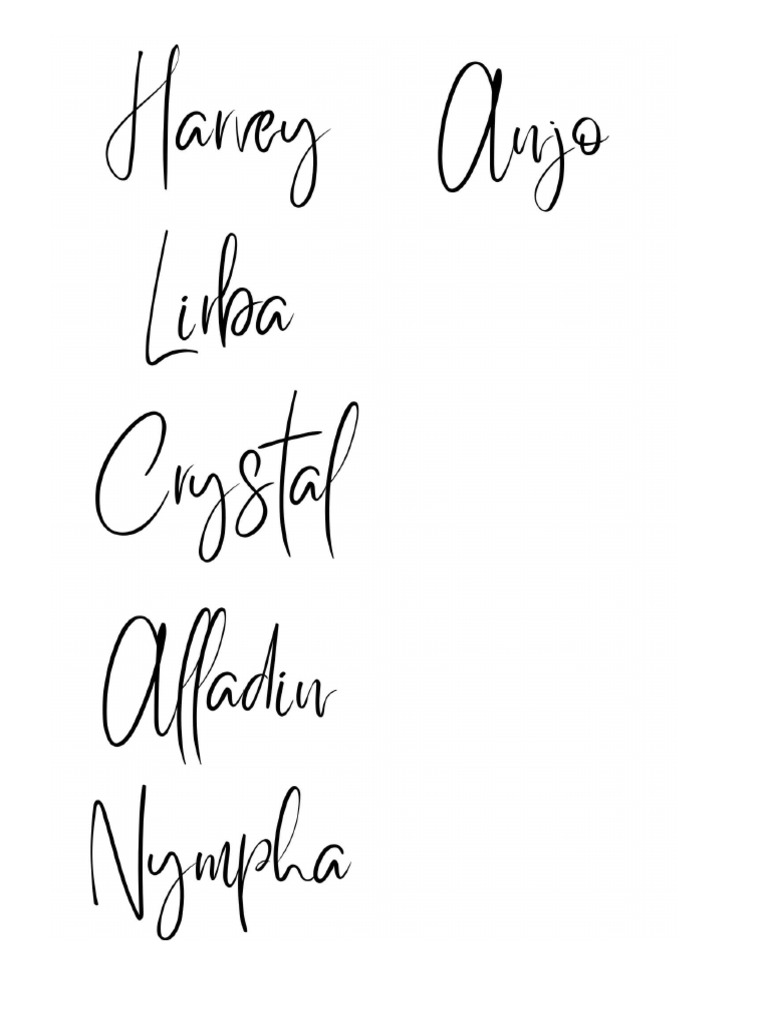 Harvey Anjo
Lirba
Crystal
Alladin
Nympha